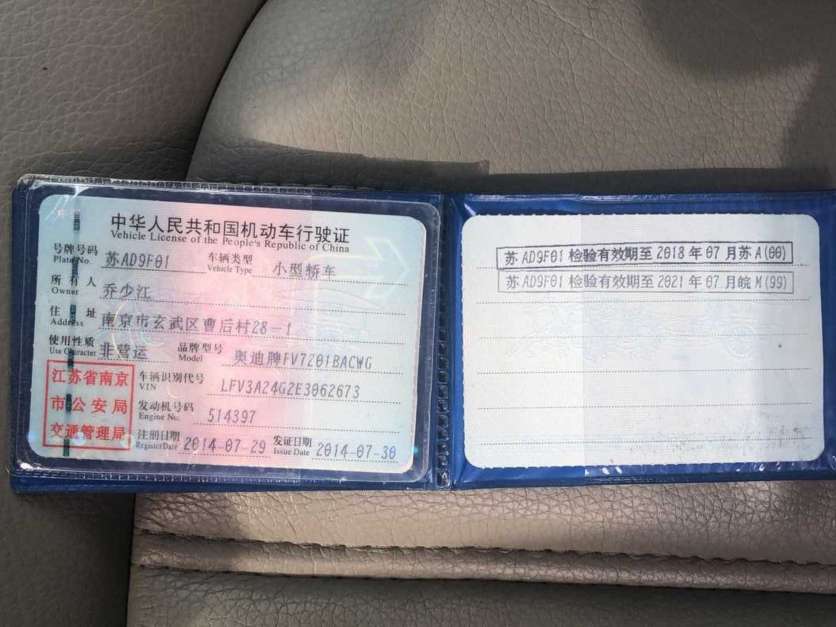 中华人民共和国机动车行驶证
Vehicle License of the People's Republic of China
号牌号码 苏AD9F01 车辆类型 小型轿车
Plate No. Vehicle Type
所有人 乔少江
Owner
住址 南京市玄武区曹后村28-1
Address
使用性质 非营运 品牌型号 奥迪牌FV7201BACWG
Use Character Model
江苏省南京
市公安局
交通管理局
车辆识别代号 LFV3A24G2E3062673
VIN
发动机号码 514397
Engine No.
注册日期 2014-07-29 发证日期 2014-07-30
Register Date Issue Date
苏AD9F01检验有效期至2018年07月苏A(00)
苏AD9F01检验有效期至2021年07月皖M(99)